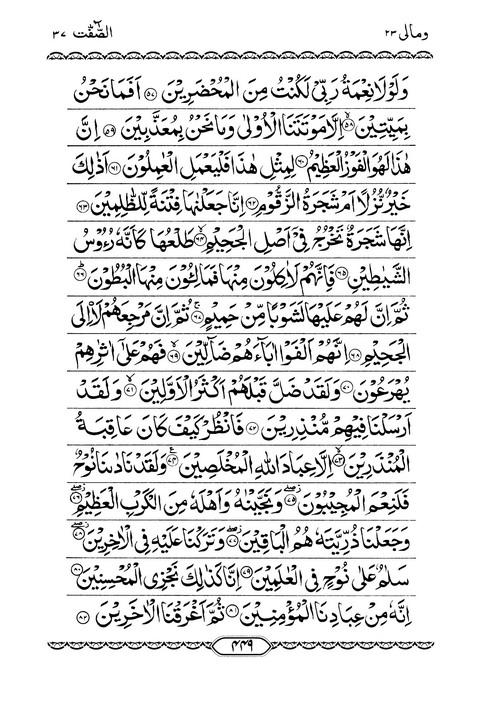 ومالی ٢٣ الصّٰٓفّٰت ٣٧
وَلَوْلَا نِعْمَةُ رَبِّيْ لَكُنْتُ مِنَ الْمُحْضَرِيْنَ ﴿٥٧﴾ اَفَمَا نَحْنُ
بِمَيِّتِيْنَ ﴿٥٨﴾ اِلَّا مَوْتَتَنَا الْاُوْلٰى وَمَا نَحْنُ بِمُعَذَّبِيْنَ ﴿٥٩﴾ اِنَّ
هٰذَا لَهُوَ الْفَوْزُ الْعَظِيْمُ ﴿٦٠﴾ لِمِثْلِ هٰذَا فَلْيَعْمَلِ الْعٰمِلُوْنَ ﴿٦١﴾ اَذٰلِكَ
خَيْرٌ نُّزُلًا اَمْ شَجَرَةُ الزَّقُّوْمِ ﴿٦٢﴾ اِنَّا جَعَلْنٰهَا فِتْنَةً لِّلظّٰلِمِيْنَ ﴿٦٣﴾
اِنَّهَا شَجَرَةٌ تَخْرُجُ فِيْٓ اَصْلِ الْجَحِيْمِ ﴿٦٤﴾ طَلْعُهَا كَاَنَّهٗ رُءُوْسُ
الشَّيٰطِيْنِ ﴿٦٥﴾ فَاِنَّهُمْ لَاٰكِلُوْنَ مِنْهَا فَمَالِـُٔوْنَ مِنْهَا الْبُطُوْنَ ﴿٦٦﴾
ثُمَّ اِنَّ لَهُمْ عَلَيْهَا لَشَوْبًا مِّنْ حَمِيْمٍ ﴿٦٧﴾ ثُمَّ اِنَّ مَرْجِعَهُمْ لَا۟اِلَى
الْجَحِيْمِ ﴿٦٨﴾ اِنَّهُمْ اَلْفَوْا اٰبَآءَهُمْ ضَآلِّيْنَ ﴿٦٩﴾ فَهُمْ عَلٰٓى اٰثٰرِهِمْ
يُهْرَعُوْنَ ﴿٧٠﴾ وَلَقَدْ ضَلَّ قَبْلَهُمْ اَكْثَرُ الْاَوَّلِيْنَ ﴿٧١﴾ وَلَقَدْ
اَرْسَلْنَا فِيْهِمْ مُّنْذِرِيْنَ ﴿٧٢﴾ فَانْظُرْ كَيْفَ كَانَ عَاقِبَةُ
الْمُنْذَرِيْنَ ﴿٧٣﴾ اِلَّا عِبَادَ اللّٰهِ الْمُخْلَصِيْنَ ﴿٧٤﴾ وَلَقَدْ نَادٰىنَا نُوْحٌ
فَلَنِعْمَ الْمُجِيْبُوْنَ ﴿٧٥﴾ وَنَجَّيْنٰهُ وَاَهْلَهٗ مِنَ الْكَرْبِ الْعَظِيْمِ ﴿٧٦﴾
وَجَعَلْنَا ذُرِّيَّتَهٗ هُمُ الْبٰقِيْنَ ﴿٧٧﴾ وَتَرَكْنَا عَلَيْهِ فِي الْاٰخِرِيْنَ ﴿٧٨﴾
سَلٰمٌ عَلٰى نُوْحٍ فِي الْعٰلَمِيْنَ ﴿٧٩﴾ اِنَّا كَذٰلِكَ نَجْزِي الْمُحْسِنِيْنَ ﴿٨٠﴾
اِنَّهٗ مِنْ عِبَادِنَا الْمُؤْمِنِيْنَ ﴿٨١﴾ ثُمَّ اَغْرَقْنَا الْاٰخَرِيْنَ ﴿٨٢﴾
٤٤٩